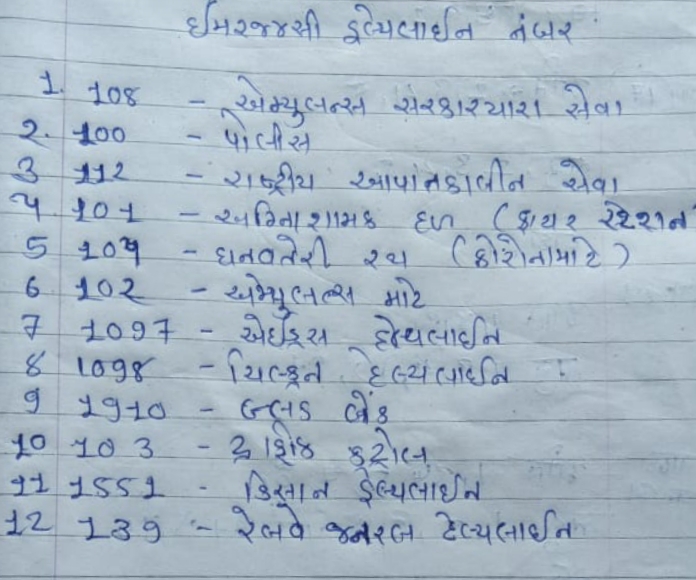 ઈમરજન્સી હેલ્પલાઈન નંબર
1. 108 - એમ્બ્યુલન્સ સરકારચારા સેવા
2. 100 - પોલીસ
3 112 - રાષ્ટ્રીય આપાતકાલીન સેવા
4 101 - અગ્નિશામક દળ (ફાયર સ્ટેશન
5 104 - ધનવતેરી રથ (કોરોનામાટે)
6 102 - એમ્બ્યુલન્સ માટે
7 1097 - એઈડ્સ હેલ્પલાઈન
8 1098 - ચિલ્ડ્રન હેલ્પલાઈન
9 1910 - બ્લડ બેંક
10 103 - ટ્રાફિક કંટ્રોલ
11 1551 - કિસાન હેલ્પલાઈન
12 139 - રેલવે જનરલ હેલ્પલાઈન